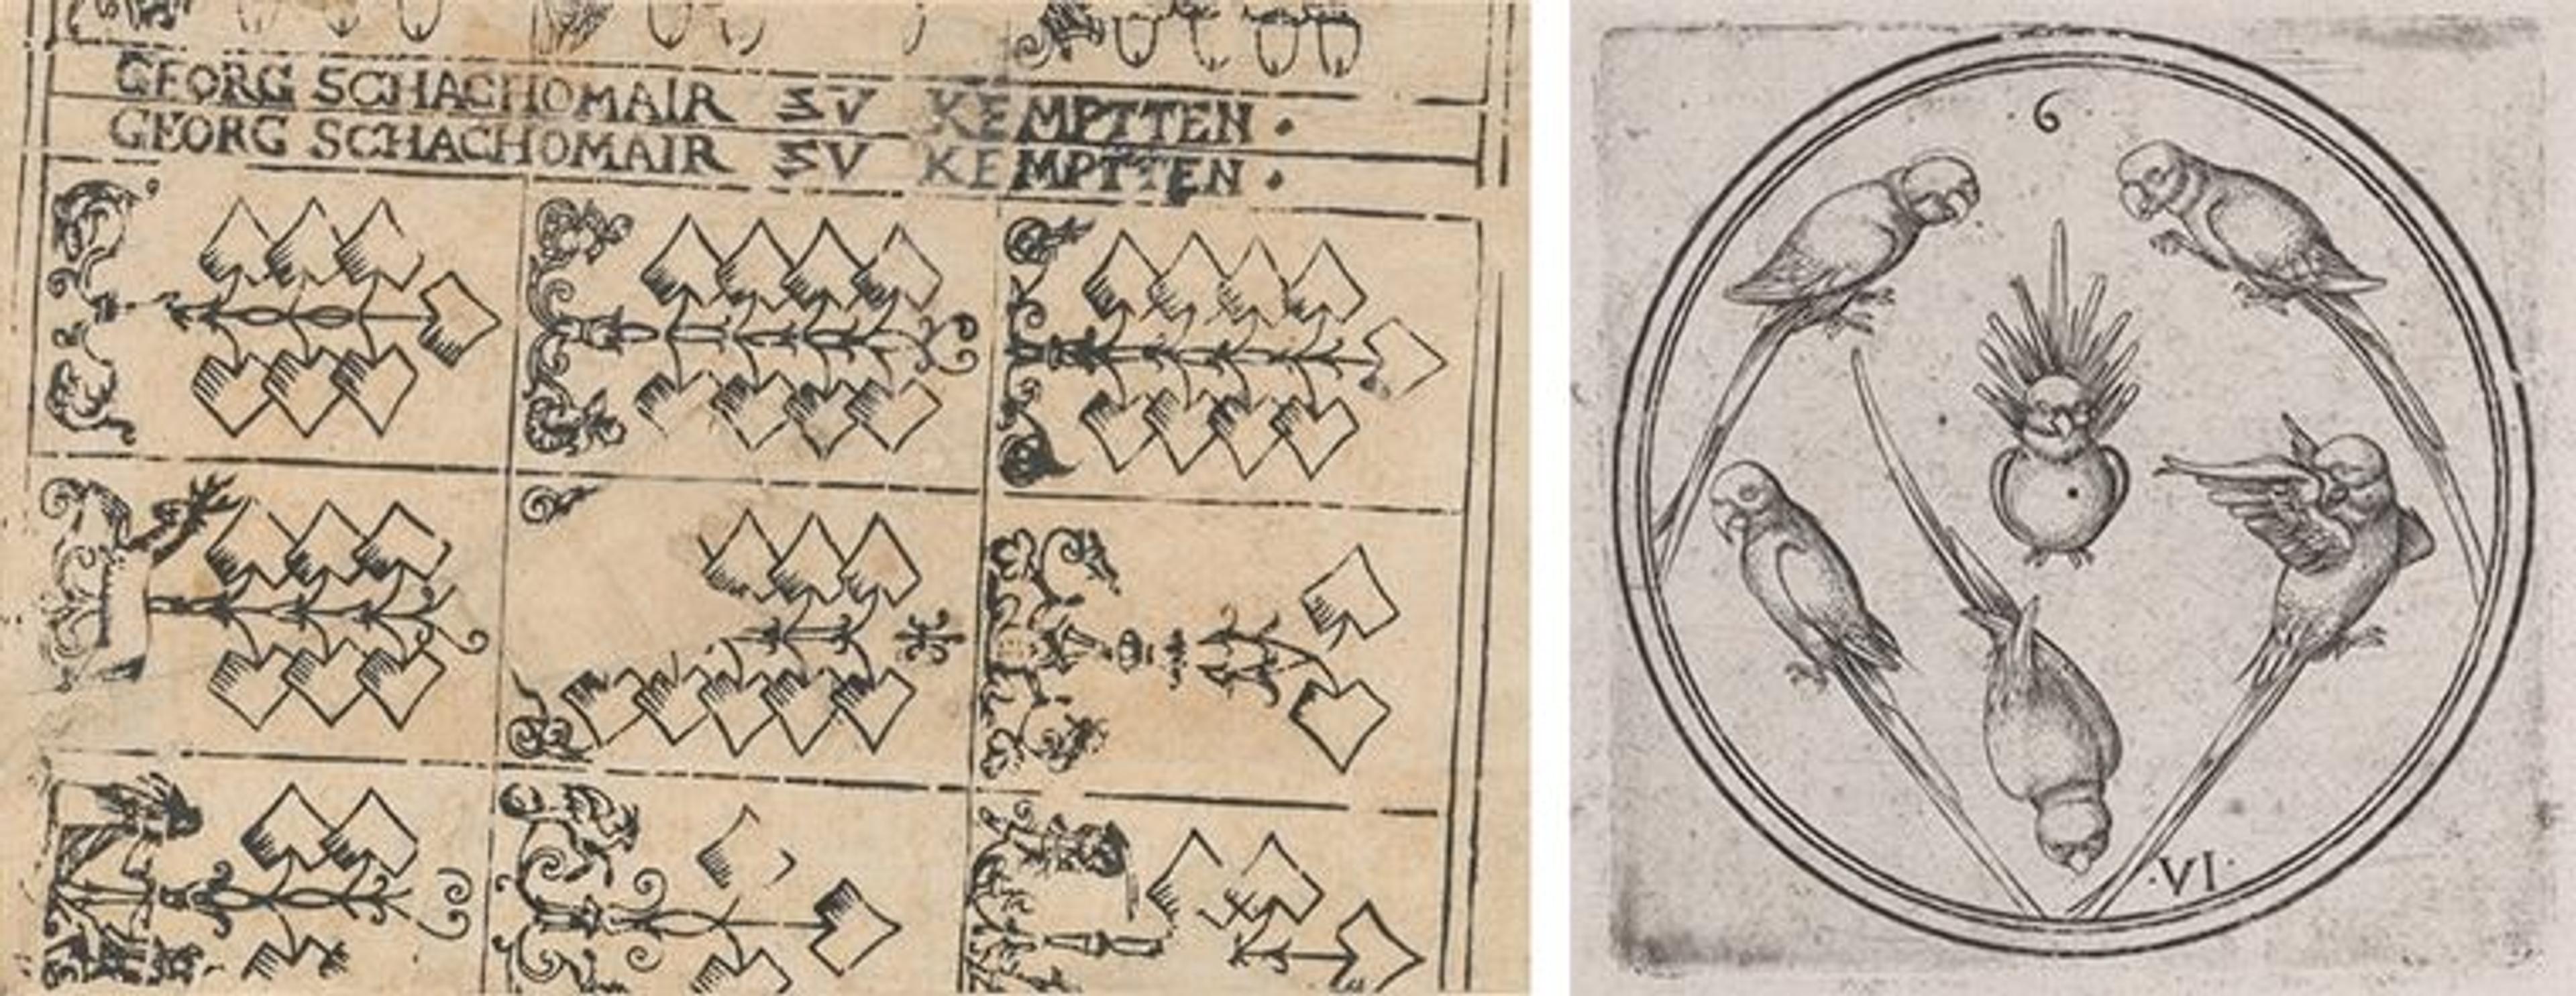 GEORG SCHACHOMAIR ZV KEMPTTEN .
GEORG SCHACHOMAIR ZV KEMPTTEN .
6
·VI·